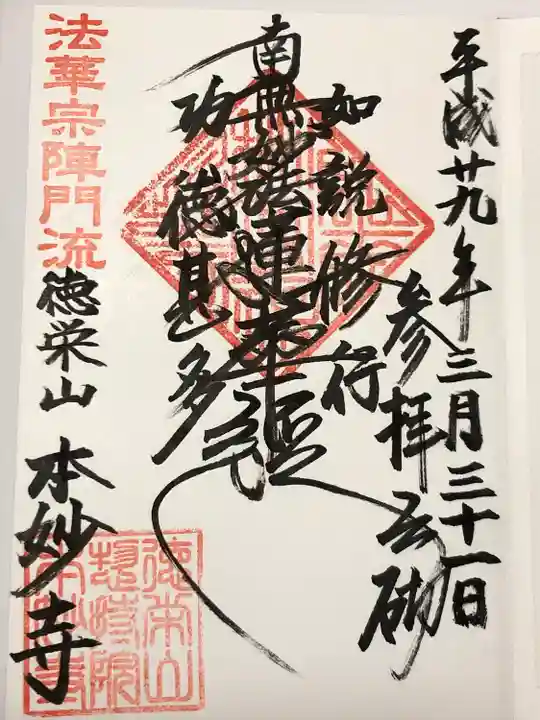 平成廿九年三月三十一日
参拝之砌
如説修行
南無妙法蓮華経
功徳甚多
法華宗陣門流
徳栄山
本妙寺
徳栄山